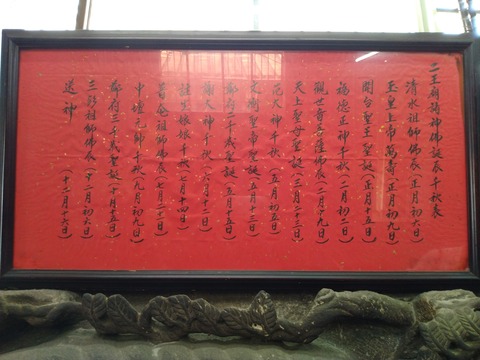 二王廟諸神佛誕辰千秋表
清水祖師佛辰(正月初六日)
玉皇上帝萬壽(正月初九日)
開台聖王聖誕(正月十五日)
福德正神千秋(二月初二日)
觀世音菩薩佛辰(二月十九日)
天上聖母聖誕(三月二十三日)
范大神千秋(五月初五日)
文衡聖帝聖誕(五月十三日)
鄭府二千歲聖誕(五月十五日)
謝大神千秋(六月十二日)
註生娘娘千秋(七月十四日)
普庵祖師佛辰
中壇元帥千秋(九月初九日)
鄭府三千歲聖誕(十月十五日)
祖師佛辰(十二月初六日)
送神